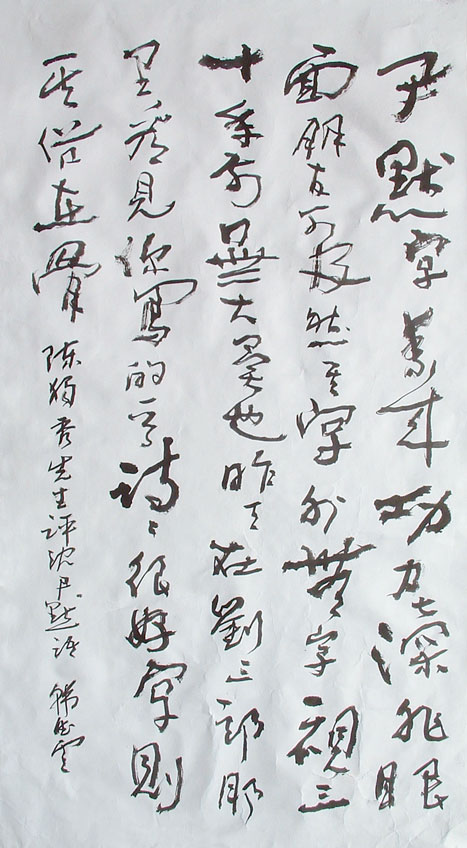 尹默字素来功力甚深非眼
面朋友可及然其字外無字視三
十年前無大異也昨天在劉三郎那
里看見你寫的一首詩〻很好字則
其俗在骨 陈独秀先生评沈尹默语